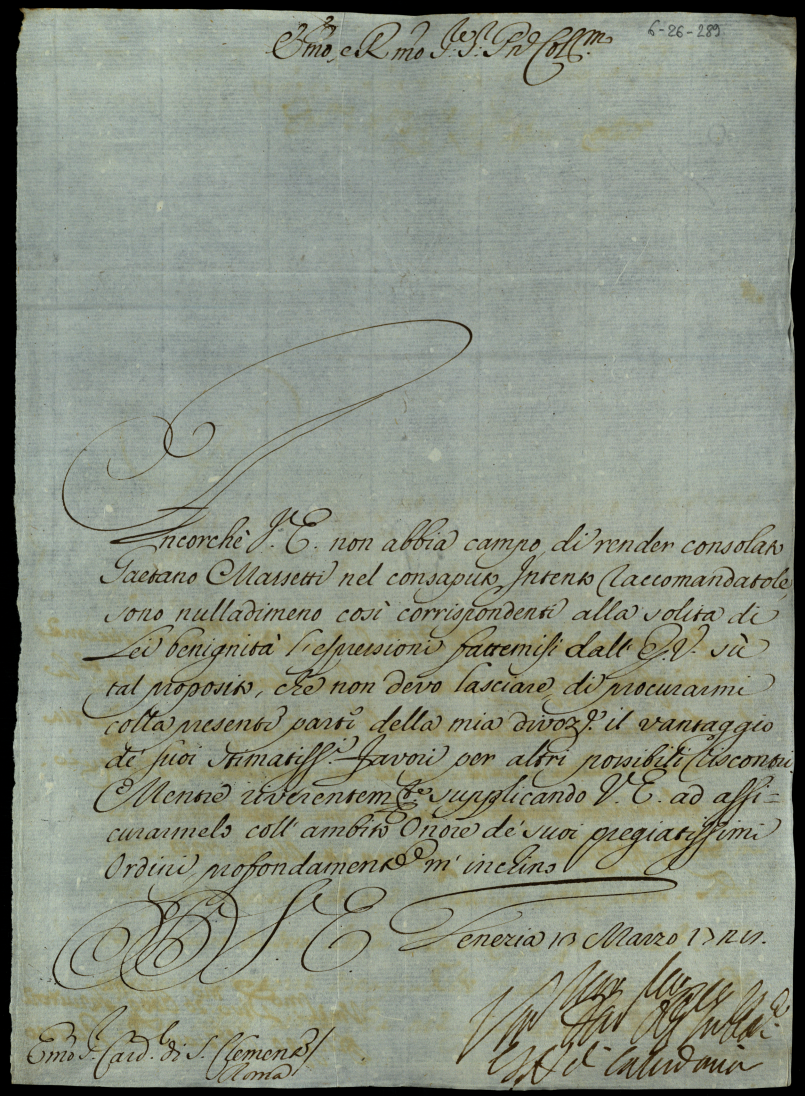 Emo, e Rmo Sre. Sr. Pne Collmo
6-26-289
Ancorchè V. E. non abbia campo di render consolato
Gaetano Massetti nel consaputo Intento raccomandatole,
sono nulladimeno così corrispondenti alla solita di
Lei benignità l'espressioni fattemisi dall' E. V. sù
tal proposito, che non devo lasciare di procurarmi
colla presente parte della mia divoze. il vantaggio
de' suoi stimatissi. favori per altri possibili riscontri.
Mentre riverentemte. supplicando V. E. ad assi-
curarmelo coll' ambito Onore de' suoi pregiatissimi
Ordini profondamente m' inchino
D V. E. Venezia 13 Marzo
Emo Sr. Card.le di S. Clemente /
Roma